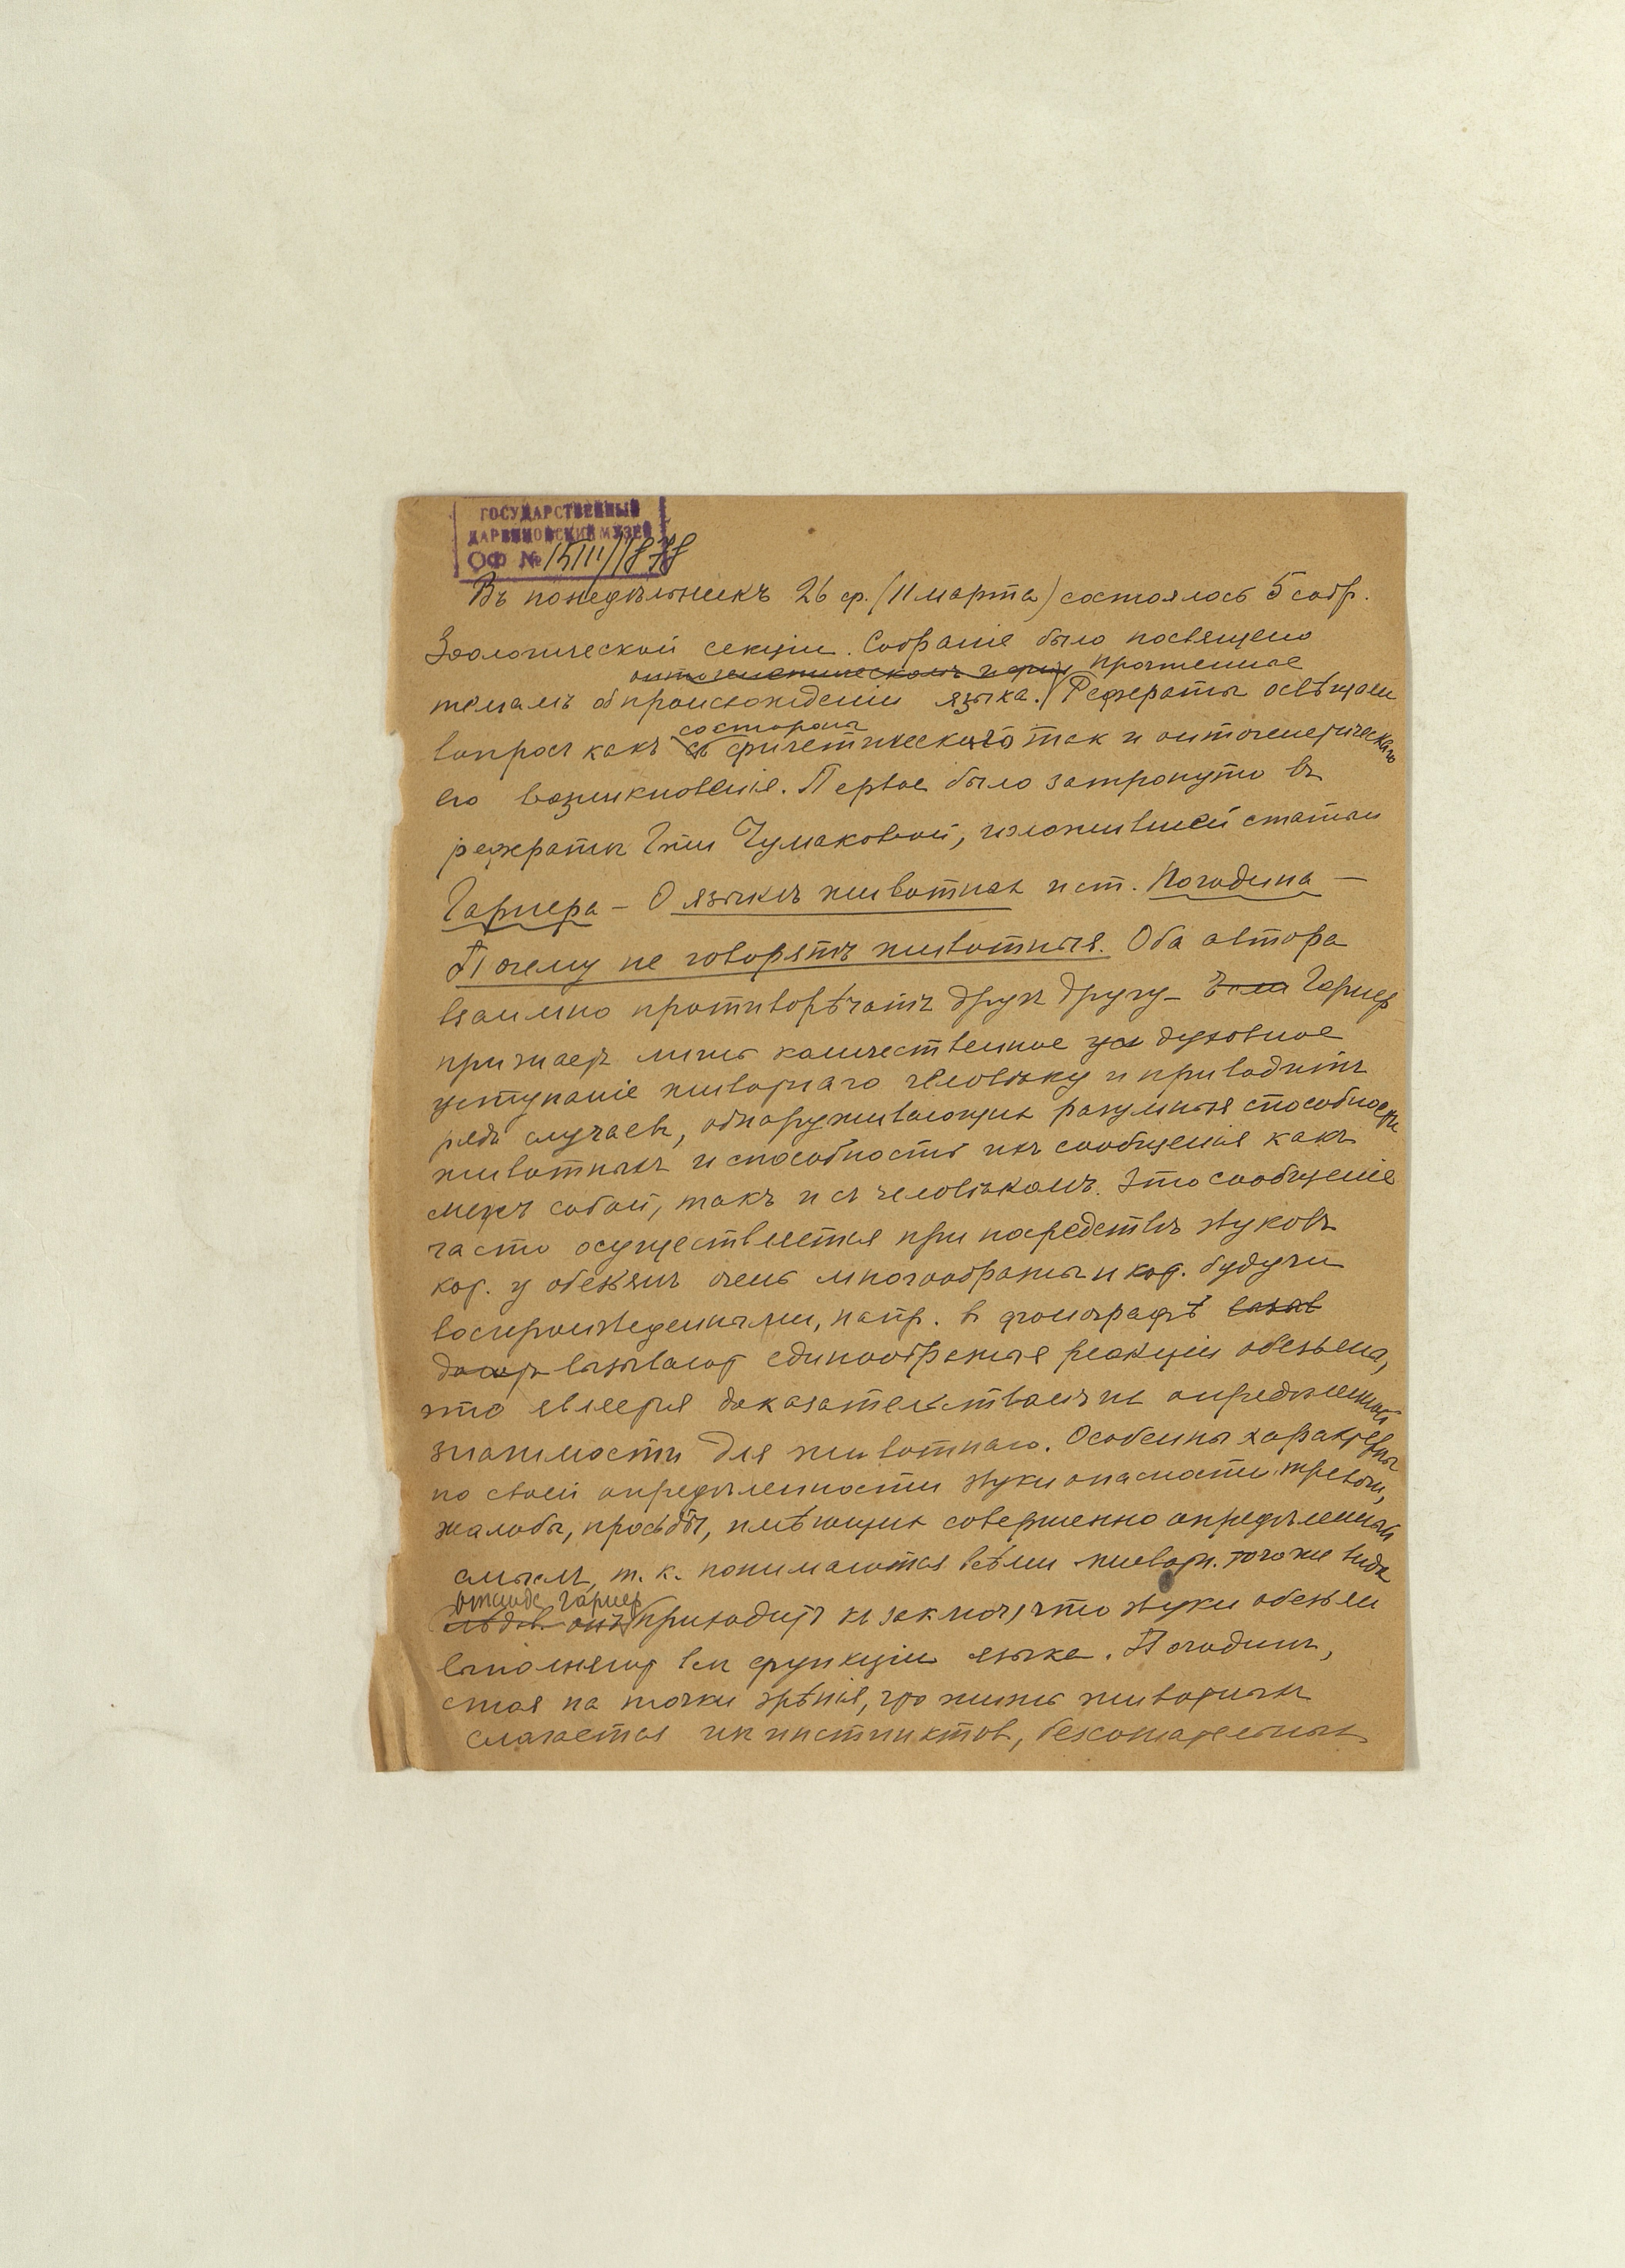 ГОСУДАРСТВЕННЫЙ
ДАРВИНОВСКИЙ МУЗЕЙ
ОФ № 15111/1878
Въ понедѣльникъ 26 ф. (11 марта) состоялось 5 собр.
Зоологической секціи. Собраніе было посвящено
онтогенетическомъ и фил прочтенные
темамъ о происхожденіи языка. Рефераты освѣщали
со стороны
вопросъ какъ съ филетическаго так и онтогенетическаго
его возникновенія. Первое было затронуто въ
рефератѣ Г-жи Чумаковой, изложившей статьи
Гарнера – О языкѣ животных и ст. Погодина –
Почему не говорятъ животныя. Оба автора
взаимно противорѣчатъ друг другу – Гарнер
признает лишь количественное ус духовное
уступаніе животнаго человѣку и приводитъ
ряд случаев, обнаруживающих разумныя способности
животныхъ и способность ихъ сообщенія какъ
межъ собой, такъ и съ человѣкомъ. Это сообщеніе
часто осуществляется при посредствѣ звуковъ
кот. у обезьянъ очень многообразны и кот. будучи
воспроизведенными, напр. в фонографѣ
вызывают единообразныя реакціи обезьяна,
это является доказательствомъ их опредѣленной
значимости для животнаго. Особенны характерны
по своей опредѣленности звуки опасности тревоги,
жалобы, просьбы, имѣющих совершенно опредѣленный
смысл, т. к. понимаются всѣми животн. того же вида
Отсюда Гарнер
приходитъ къ заключ, что звуки обезьян
выполняют всѣ функціи языка. Погодинъ,
стоя на точки зрѣнія, что жизнь животных
слагается из инстинктов, безсознательных